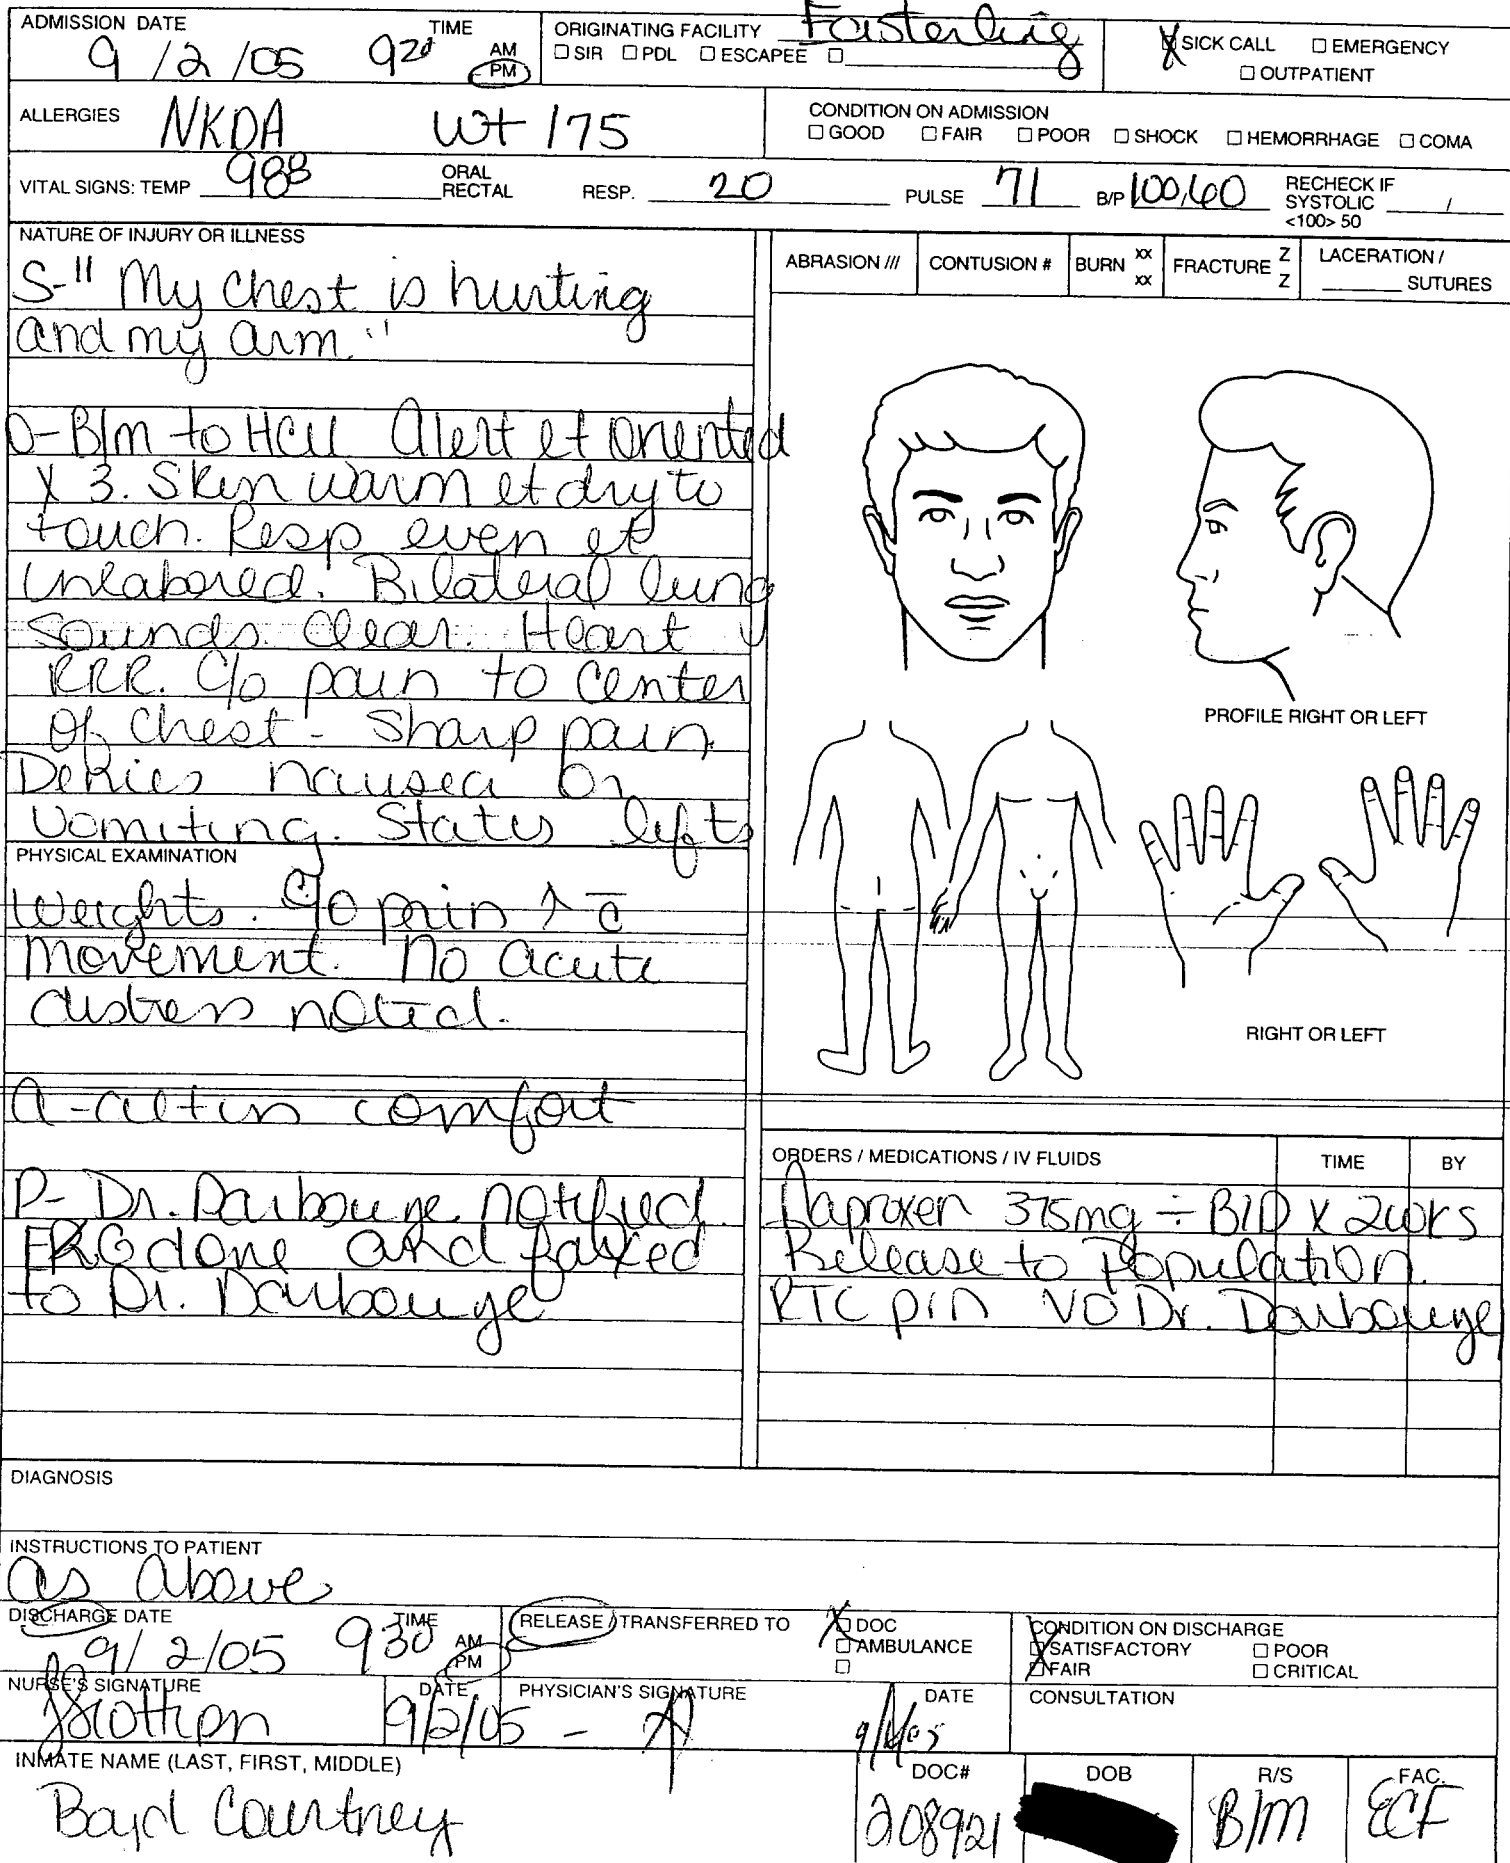 ADMISSION DATE TIME AM PM
9 / 2 / 05
ORIGINATING FACILITY Easterling
☐ SIR ☐ PDL ☐ ESCAPEE ☐
X SICK CALL ☐ EMERGENCY
☐ OUTPATIENT
ALLERGIES NKDA Wt 175
CONDITION ON ADMISSION
☐ GOOD ☐ FAIR ☐ POOR ☐ SHOCK ☐ HEMORRHAGE ☐ COMA
VITAL SIGNS: TEMP 988 ORAL RECTAL RESP. 20 PULSE 71 B/P 100/60 RECHECK IF SYSTOLIC / <100> 50
NATURE OF INJURY OR ILLNESS
S-" My chest is hurting
and my arm."
O- B/m to HCU Alert et oriented
X 3. Skin warm et dry to
touch. Resp even et
unlabored. Bilateral lung
sounds clear. Heart
RRR. C/o pain to center
of chest - sharp pain.
Denies nausea or
vomiting. States lifts
PHYSICAL EXAMINATION
weights. C/o pain ↑ c̄
movement. No acute
distress noted.
A- alt in comfort
P- Dr. Darbouze notified.
EKG done and faxed
to Dr. Darbouze
ABRASION /// CONTUSION # BURN xx xx FRACTURE Z Z LACERATION / SUTURES
PROFILE RIGHT OR LEFT
RIGHT OR LEFT
ORDERS / MEDICATIONS / IV FLUIDS TIME BY
Naproxen 375mg ÷ BID X 2wks
Release to Population.
RTC prn VO Dr. Darbouze
DIAGNOSIS
INSTRUCTIONS TO PATIENT
as above
DISCHARGE DATE TIME AM PM
9/ 2/05 930
RELEASE / TRANSFERRED TO ☒ DOC
☐ AMBULANCE
☐
CONDITION ON DISCHARGE
☒ SATISFACTORY ☐ POOR
☐ FAIR ☐ CRITICAL
NURSE'S SIGNATURE DATE 9/2/05
PHYSICIAN'S SIGNATURE DATE
CONSULTATION
INMATE NAME (LAST, FIRST, MIDDLE)
Boyd Courtney
DOC# 208921
DOB
R/S B/m
FAC. ECF